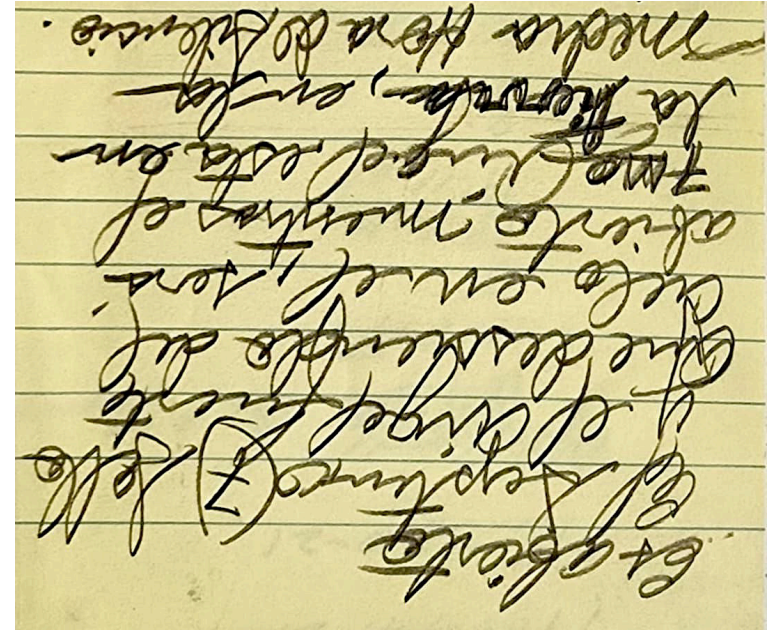 Es abierto
El Septimo (7) Sello
y el Angel fuerte
que desciende del
cielo en el, será
abierto mientras el
7mo Angel está en
la tierra, en la
media Hora de silencio.